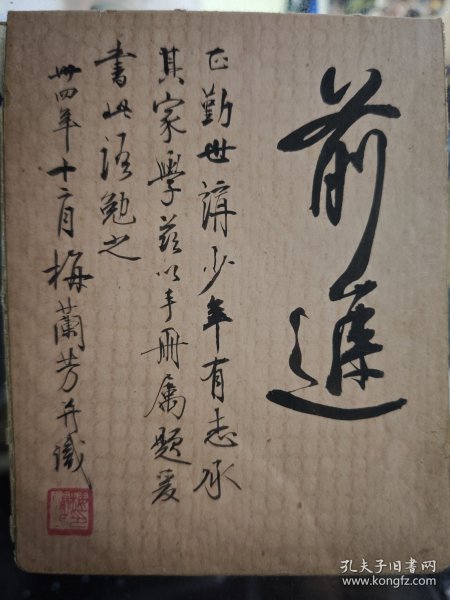 前進
正勤世講少年有志承
其家學茲以手冊属題爰
書此語勉之
卅四年十二月梅蘭芳并識
孔夫子旧书网
www.kongfz.com